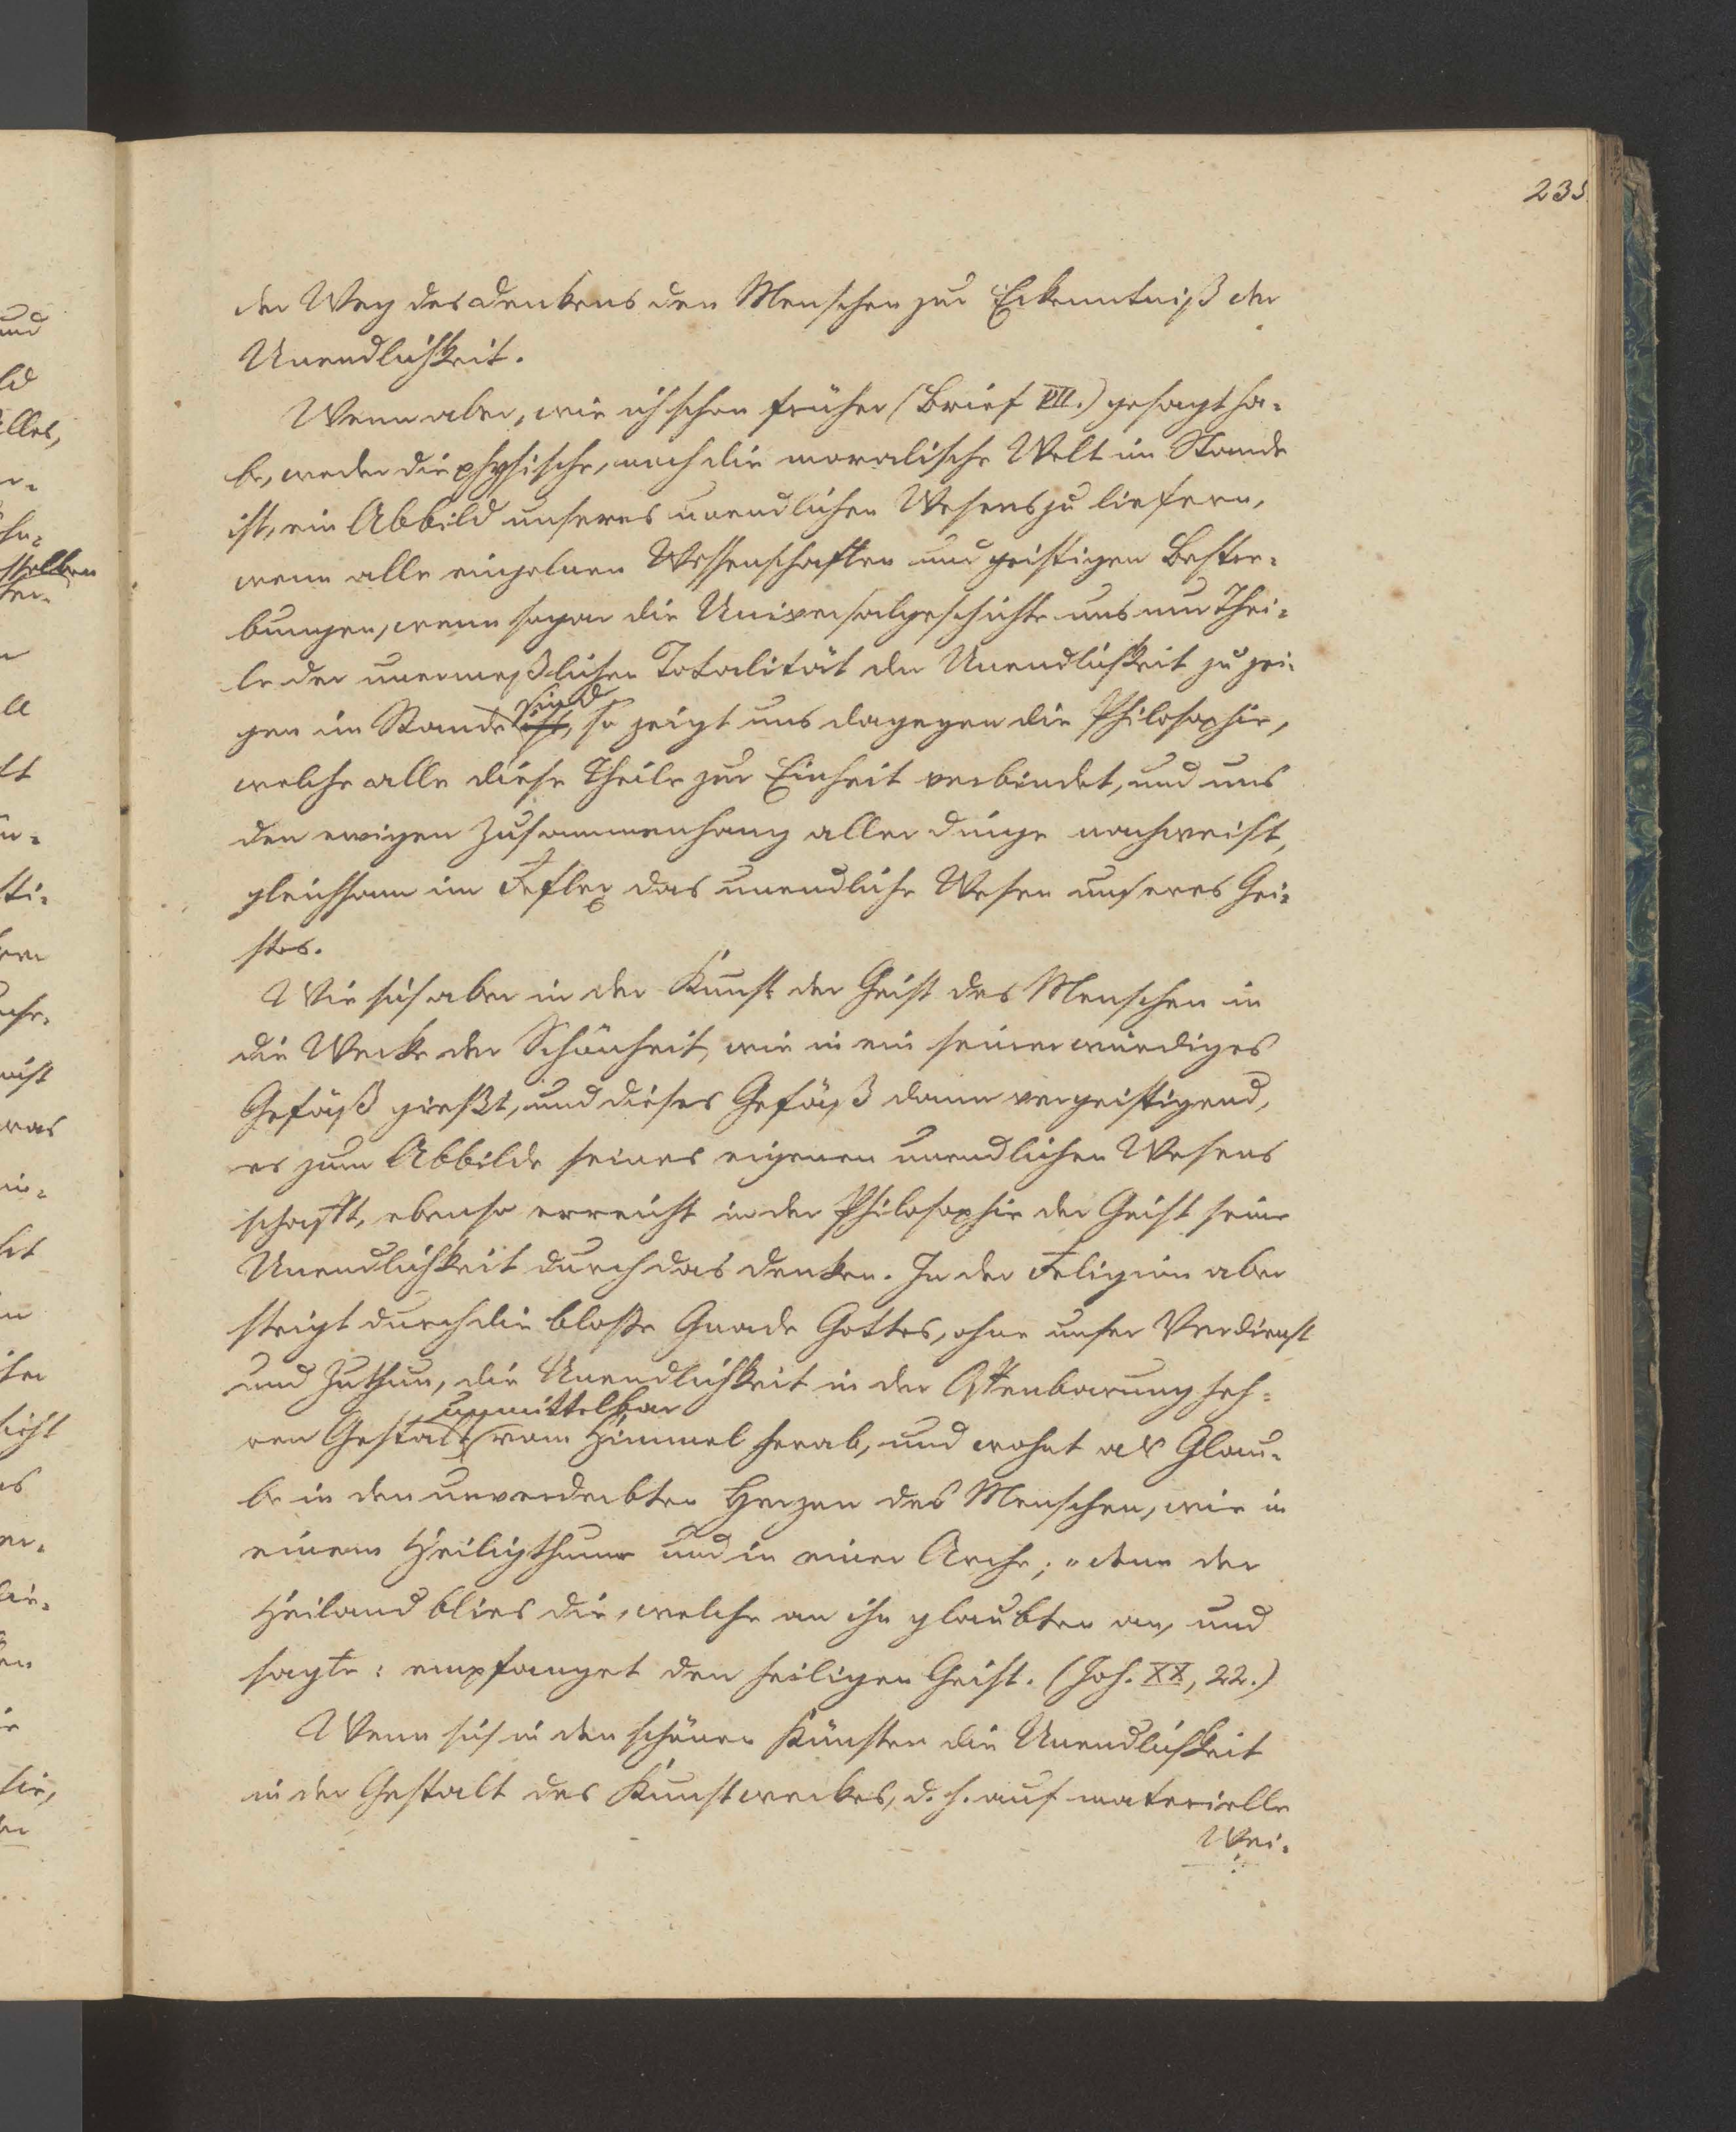 235
der Weg des Denkens den Menschen zur Erkenntniß der
Unendlichkeit.
Wenn aber, wie ich schon früher (Brief VII.) gesagt ha-
be, weder die physische, noch die moralische Welt im Stande
ist, ein Abbild unseres unendlichen Wesens zu liefern,
wenn alle einzelnen Wissenschaften und geistigen Bestre-
bungen, wenn sogar die Universalgeschichte uns nur Thei-
le der unermeßlichen Totalität der Unendlichkeit zu zei-
sind
gen im Stande ist, so zeigt uns dagegen die Philosophie,
welche alle diese Theile zur Einheit verbindet, und uns
den ewigen Zusammenhang aller Dinge nachweist,
gleichsam im Reflex das unendliche Wesen unseres Gei-
stes.
Wie sich aber in der Kunst der Geist des Menschen in
die Werke der Schönheit, wie in ein seiner würdiges
Gefäß gießt, und dieses Gefäß dann vergeistigend,
es zum Abbilde seines eigenen unendlichen Wesens
schafft, ebenso erreicht in der Philosophie der Geist seine
Unendlichkeit durch das Denken. In der Religion aber
steigt durch die bloße Gnade Gottes, ohne unser Verdienst
und Zuthun, die Unendlichkeit in der Offenbarung heh-
unmittelbar
ren Gestalt vom Himmel herab, und wohnt als Glau-
be in den unverderbten Herzen des Menschen, wie in
einem Heiligthume und in einer Arche; „denn der
Heiland blies die, welche an ihn glaubten an, und
sagte: empfanget den heiligen Geist. (Joh. XX, 22.)
Wenn sich in den schönen Künsten die Unendlichkeit
in der Gestalt des Kunstwerkes, d. h. auf materielle
Wei-